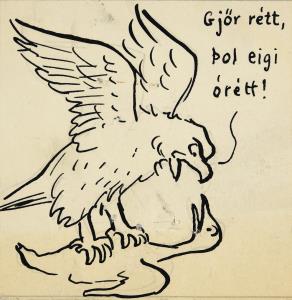 Gjör rétt,
þol eigi
órétt!